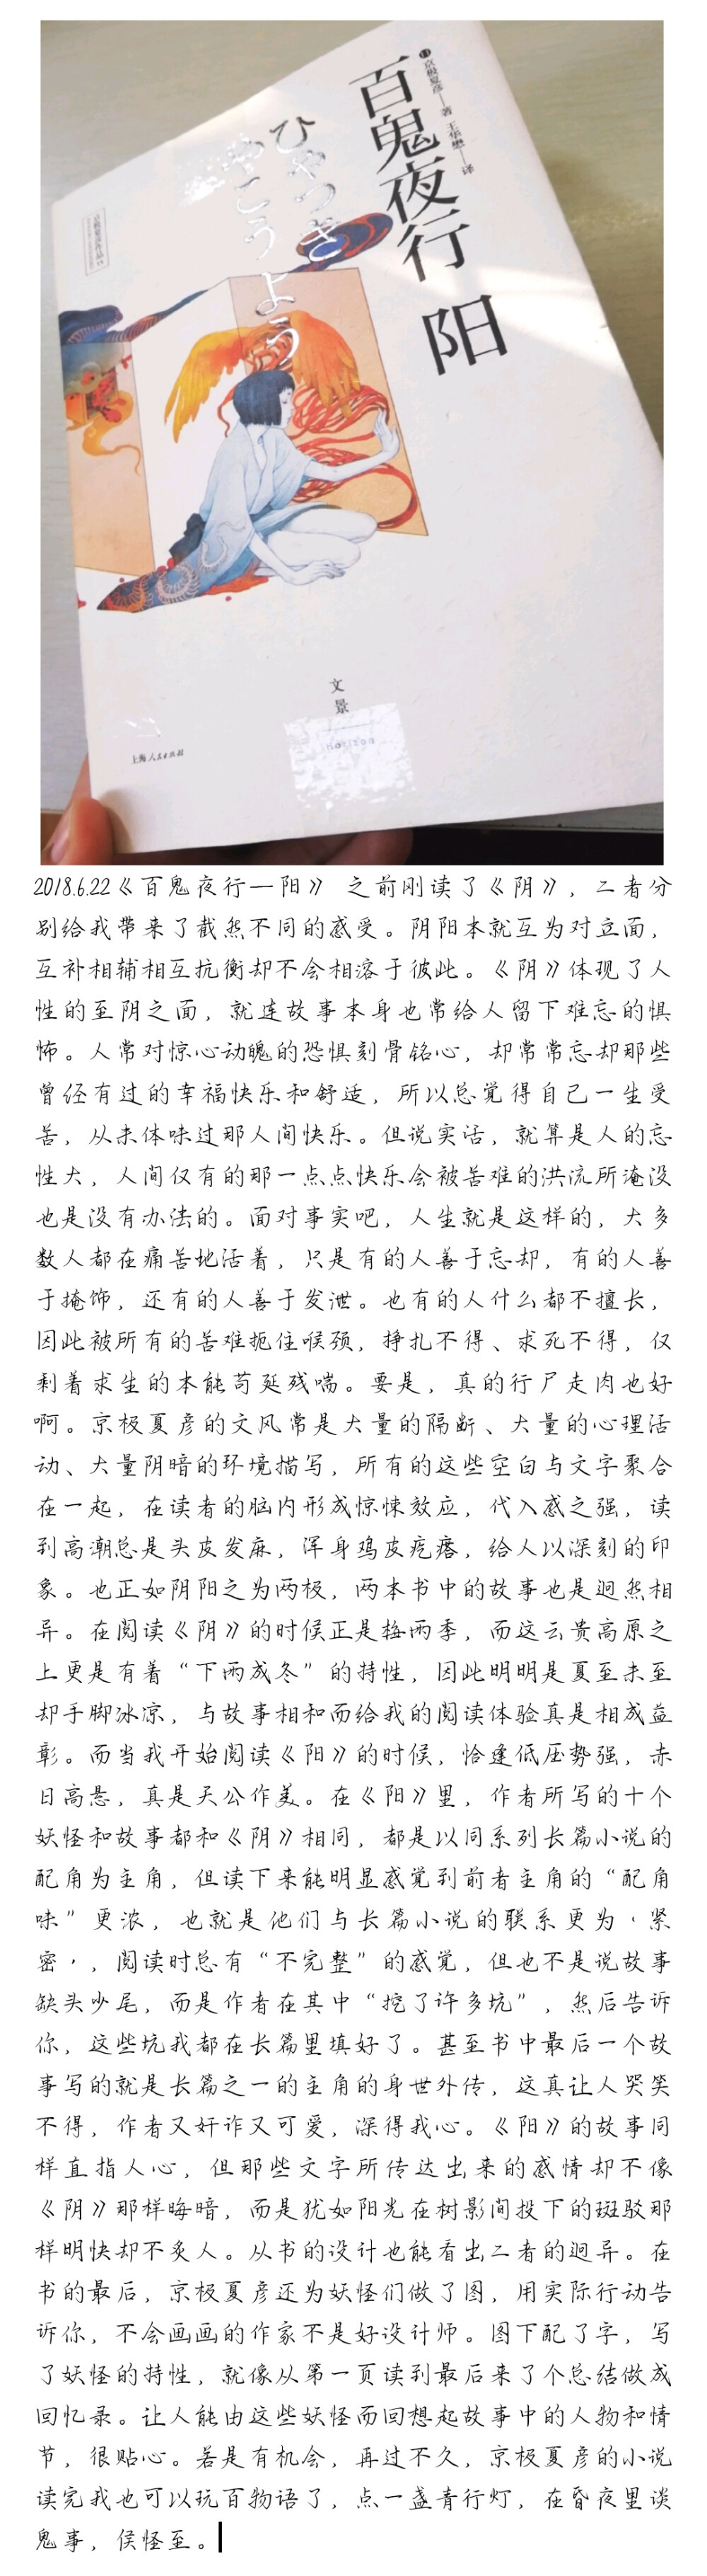 日 京极夏彦——著 王华懋——译
百鬼夜行 阳
ひゃっき
やこうよう
文景
horizon
上海人民出版社
2018.6.22《百鬼夜行—阳》 之前刚读了《阴》，二者分
别给我带来了截然不同的感受。阴阳本就互为对立面，
互补相辅相互抗衡却不会相溶于彼此。《阴》体现了人
性的至阴之面，就连故事本身也常给人留下难忘的惧
怖。人常对惊心动魄的恐惧刻骨铭心，却常常忘却那些
曾经有过的幸福快乐和舒适，所以总觉得自己一生受
苦，从未体味过那人间快乐。但说实话，就算是人的忘
性大，人间仅有的那一点点快乐会被苦难的洪流所淹没
也是没有办法的。面对事实吧，人生就是这样的，大多
数人都在痛苦地活着，只是有的人善于忘却，有的人善
于掩饰，还有的人善于发泄。也有的人什么都不擅长，
因此被所有的苦难扼住喉颈，挣扎不得、求死不得，仅
剩着求生的本能苟延残喘。要是，真的行尸走肉也好
啊。京极夏彦的文风常是大量的隔断、大量的心理活
动、大量阴暗的环境描写，所有的这些空白与文字聚合
在一起，在读者的脑内形成惊悚效应，代入感之强，读
到高潮总是头皮发麻，浑身鸡皮疙瘩，给人以深刻的印
象。也正如阴阳之为两极，两本书中的故事也是迥然相
异。在阅读《阴》的时候正是梅雨季，而这云贵高原之
上更是有着“下雨成冬”的特性，因此明明是夏至未至
却手脚冰凉，与故事相和而给我的阅读体验真是相成益
彰。而当我开始阅读《阳》的时候，恰逢低压势强，赤
日高悬，真是天公作美。在《阳》里，作者所写的十个
妖怪和故事都和《阴》相同，都是以同系列长篇小说的
配角为主角，但读下来能明显感觉到前者主角的“配角
味”更浓，也就是他们与长篇小说的联系更为‘紧
密’，阅读时总有“不完整”的感觉，但也不是说故事
缺头少尾，而是作者在其中“挖了许多坑”，然后告诉
你，这些坑我都在长篇里填好了。甚至书中最后一个故
事写的就是长篇之一的主角的身世外传，这真让人哭笑
不得，作者又奸诈又可爱，深得我心。《阳》的故事同
样直指人心，但那些文字所传达出来的感情却不像
《阴》那样晦暗，而是犹如阳光在树影间投下的斑驳那
样明快却不炙人。从书的设计也能看出二者的迥异。在
书的最后，京极夏彦还为妖怪们做了图，用实际行动告
诉你，不会画画的作家不是好设计师。图下配了字，写
了妖怪的特性，就像从第一页读到最后来了个总结做成
回忆录。让人能由这些妖怪而回想起故事中的人物和情
节，很贴心。若是有机会，再过不久，京极夏彦的小说
读完我也可以玩百物语了，点一盏青行灯，在昏夜里谈
鬼事，侯怪至。